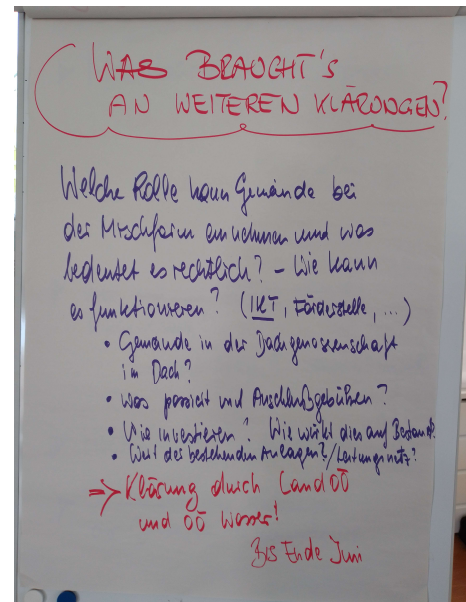 WAS BRAUCHT'S
AN WEITEREN KLÄRUNGEN?
Welche Rolle kann Gemeinde bei
der Mischform einnehmen und was
bedeutet es rechtlich? – Wie kann
es funktionieren? (IKT, Förderstelle, ...)
• Gemeinde in der Dachgenossenschaft
im Dach?
• Was passiert mit Anschlußgebühren?
• Wie investieren? Wie wirkt dies auf Bestand?
• Wert des bestehenden Anlagen?/Leitungsnetz?
⇒ Klärung durch Land OÖ
und OÖ Wasser!
Bis Ende Juni